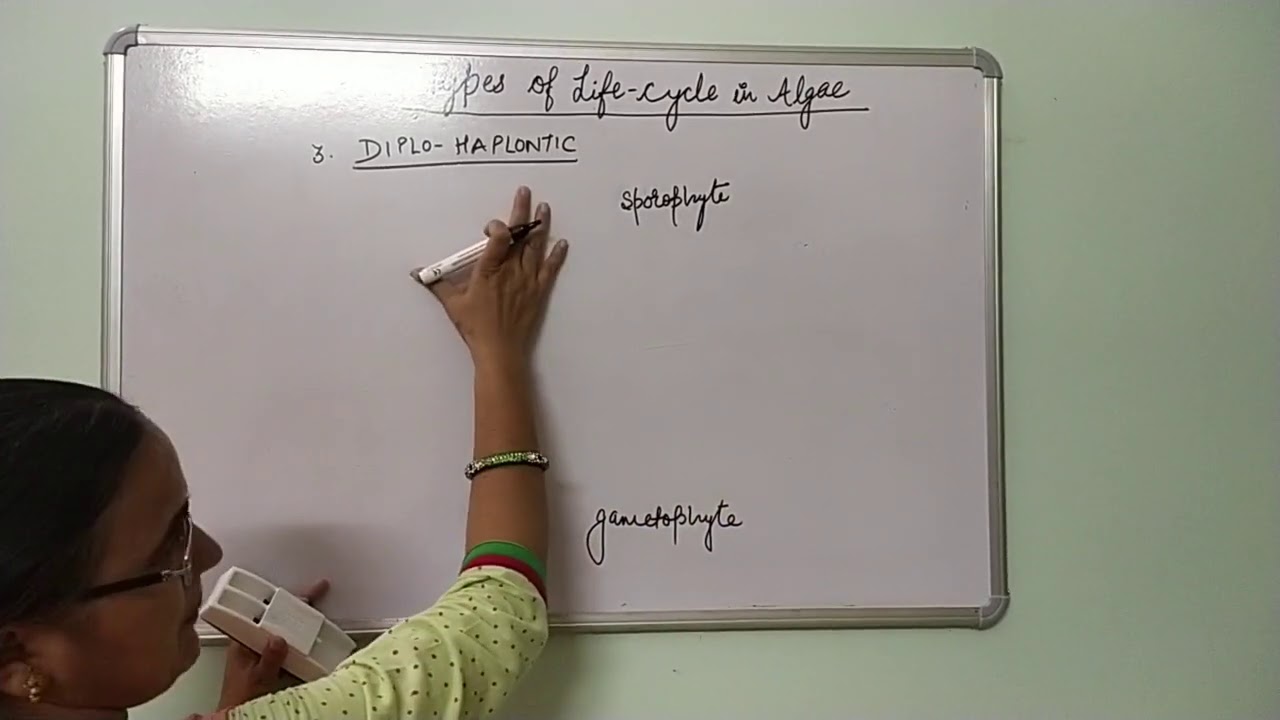 Types of Life-cycle in Algae
3. DIPLO-HAPLONTIC
sporophyte
gametophyte